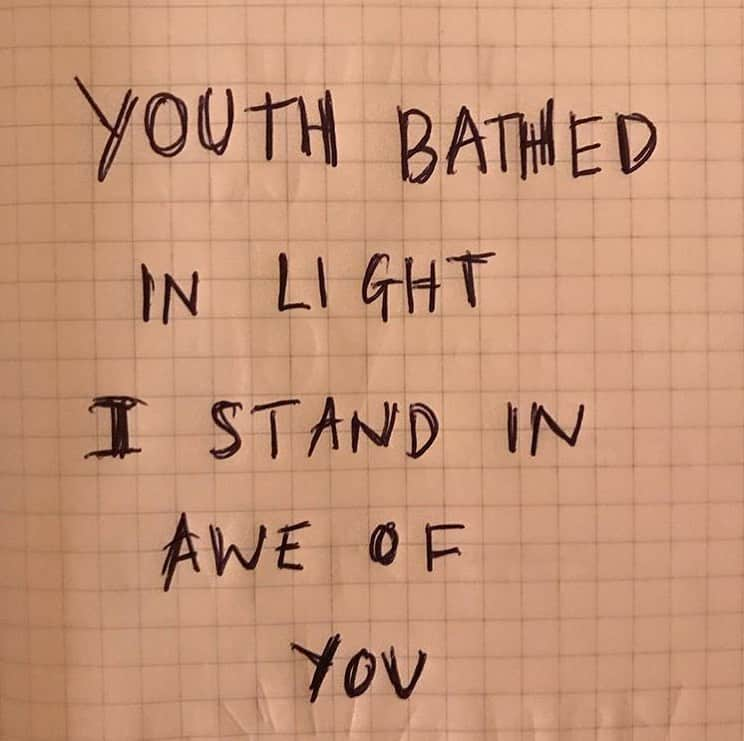 YOUTH BATHED
IN LIGHT
I STAND IN
AWE OF
YOU